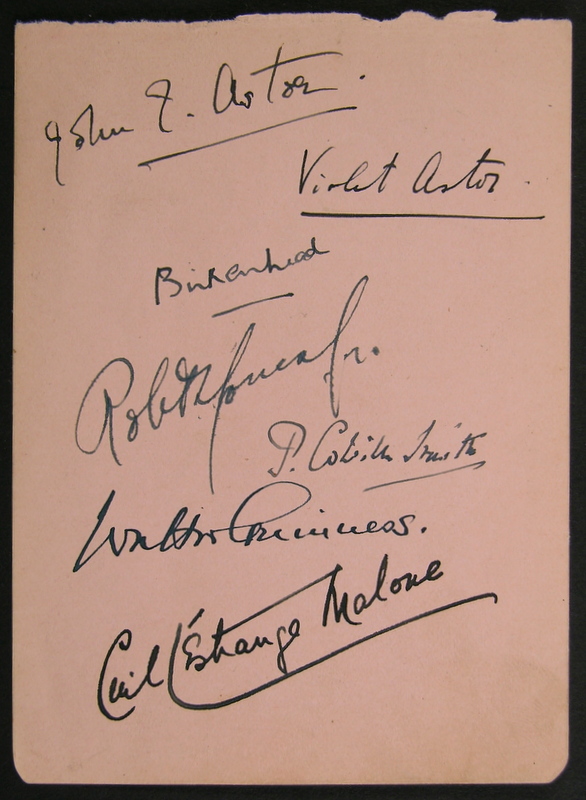 John J. Astor.
Violet Astor.
Birkenhead
Robt T Jones Jr.
P. Colville Smith
Walter Guinness.
Cecil L'Estrange Malone